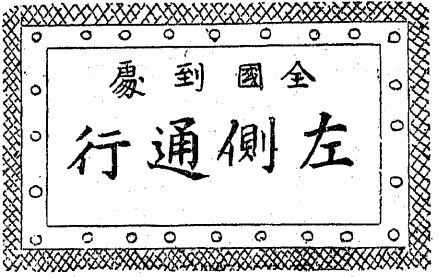 全國到處
左側通行